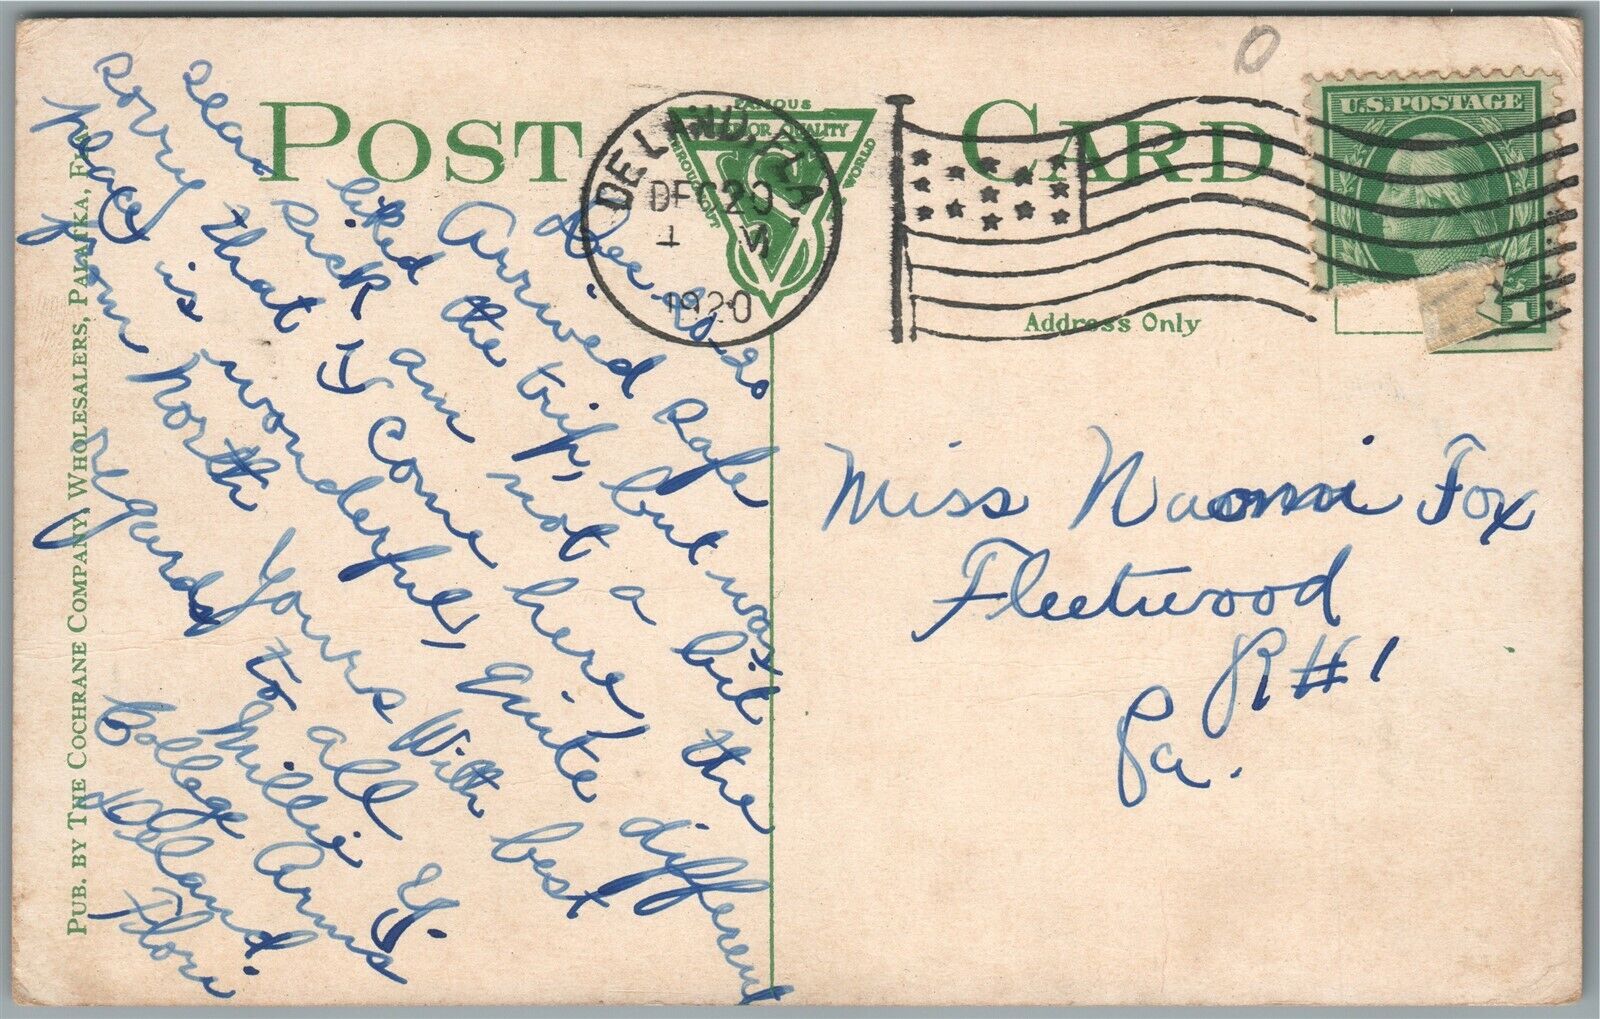 POST CARD
FAMOUS
FOR QUALITY
THROUGHOUT
WORLD
DELAND, FLA.
DEC 20
1920
U.S. POSTAGE
1
Address Only
PUB. BY THE COCHRANE COMPANY, WHOLESALERS, PALATKA, FLA.
Dec. 20-20
Arrived safe
liked the trip, but was
sick am not a bit the
sorry that I come here, quite different
place is wonderful,
from North Yours With best
regards to all
Millie G.
College Arms
DeLand
Flori
Miss Naomi Fox
Fleetwood
R#1
Pa.